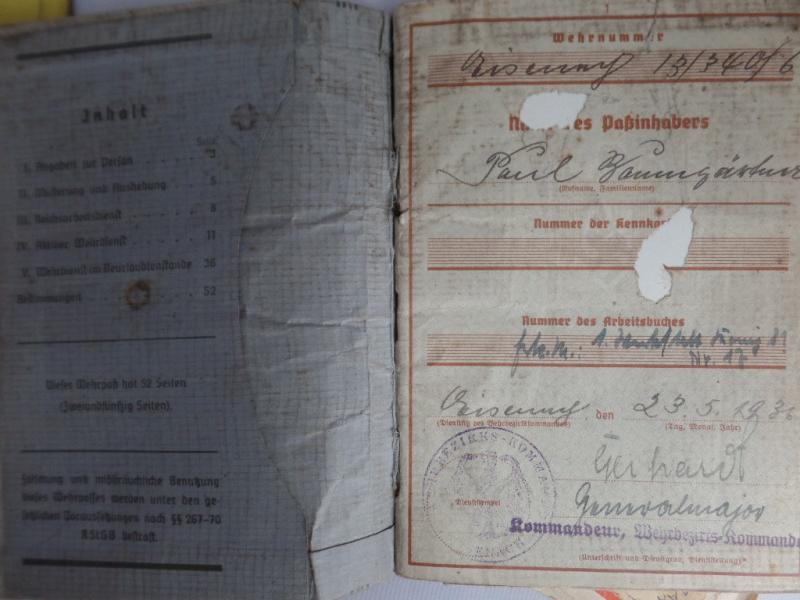 Inhalt
Seite
I. Angaben zur Person 3
II. Musterung und Aushebung 5
III. Reichsarbeitsdienst 8
IV. Aktiver Wehrdienst 11
V. Wehrdienst im Beurlaubtenstande 36
Bestimmungen 52
Dieser Wehrpaß hat 52 Seiten
(Zweiundfünfzig Seiten).
Fälschung und mißbräuchliche Benutzung
dieses Wehrpasses werden unter den ge-
setzlichen Voraussetzungen nach §§ 267-70
RStGB bestraft.
1
Wehrnummer
Eisenach 13/340/6
des Paßinhabers
Paul Baumgärtner
(Rufname, Familienname)
Nummer der Kennkar
Nummer des Arbeitsbuches
Nr. 17
Eisenach den 23.5.193
(Dienstsitz des Wehrbezirkskommandos) (Tag, Monat, Jahr)
BEZIRKS-KOMMA
ENACH
Dienststempel
Gerhardt
Generalmajor
Kommandeur, Wehrbezirks-Kommando
(Unterschrift und Dienstgrad, Dienststellung)